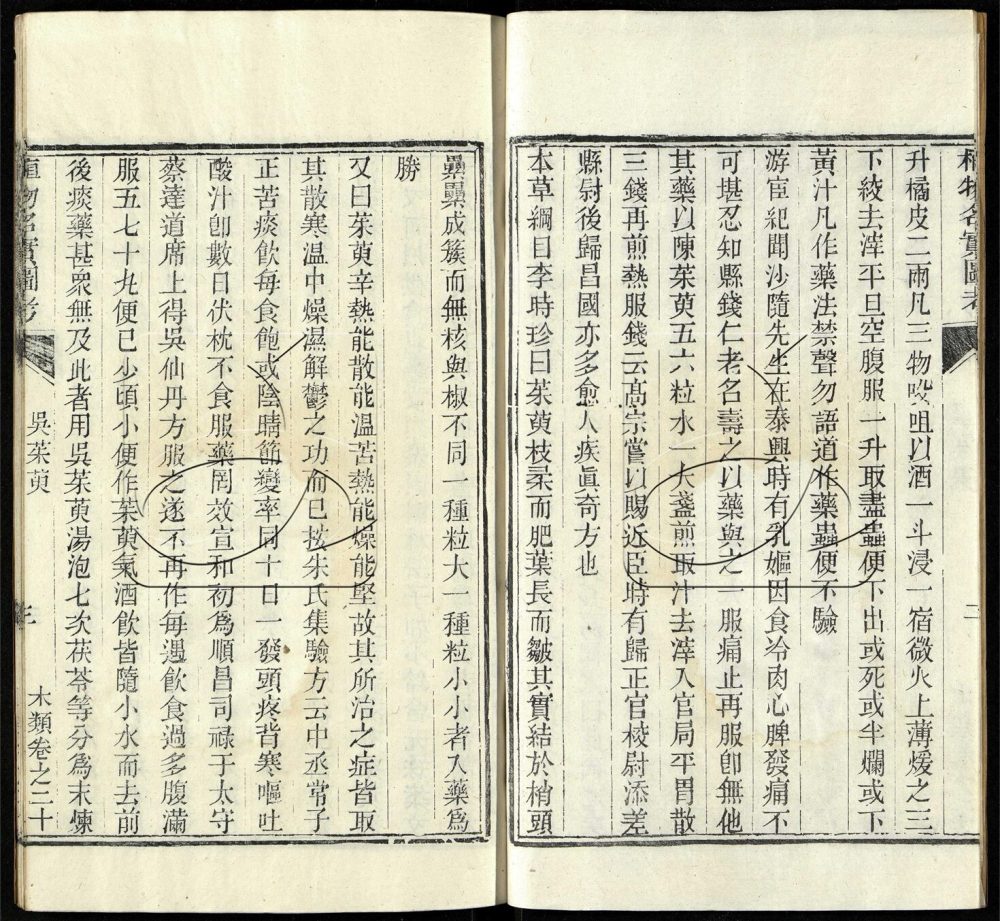 植物名實圖考
二
升橘皮二兩凡三物㕮咀以酒一斗浸一宿微火上薄煖之三
下絞去滓平旦空腹服一升取盡蟲便下出或死或半爛或下
黃汁凡作藥法禁聲勿語道作藥蟲便不驗
游宦紀聞沙隨先生在泰興時有乳嫗因食冷肉心脾發痛不
可堪忍知縣錢仁老名壽之以藥與之一服痛止再服卽無他
其藥以陳茱萸五六粒水一大盞煎取汁去滓入官局平胃散
三錢再煎熱服錢云高宗嘗以賜近臣時有歸正官棱尉添差
縣尉後歸昌國亦多愈人疾眞奇方也
本草綱目李時珍曰茱萸枝柔而肥葉長而皺其實結於梢頭
纍纍成簇而無核與椒不同一種粒大一種粒小小者入藥爲
勝
又曰茱萸辛熱能散能温苦熱能燥能堅故其所治之症皆取
其散寒温中燥濕解鬱之功而已按朱氏集驗方云中丞常子
正苦痰飮每食飽或陰晴節變率同十日一發頭疼背寒嘔吐
酸汁卽數日伏枕不食服藥罔效宣和初爲順昌司禄于太守
蔡達道席上得吳仙丹方服之遂不再作每遇飮食過多腹滿
服五七十丸便已少頃小便作茱萸氣酒飮皆隨小水而去前
後痰藥甚衆無及此者用吳茱萸湯泡七次茯苓等分爲末煉
植物名實圖考
吳茱萸
三
木類卷之三十